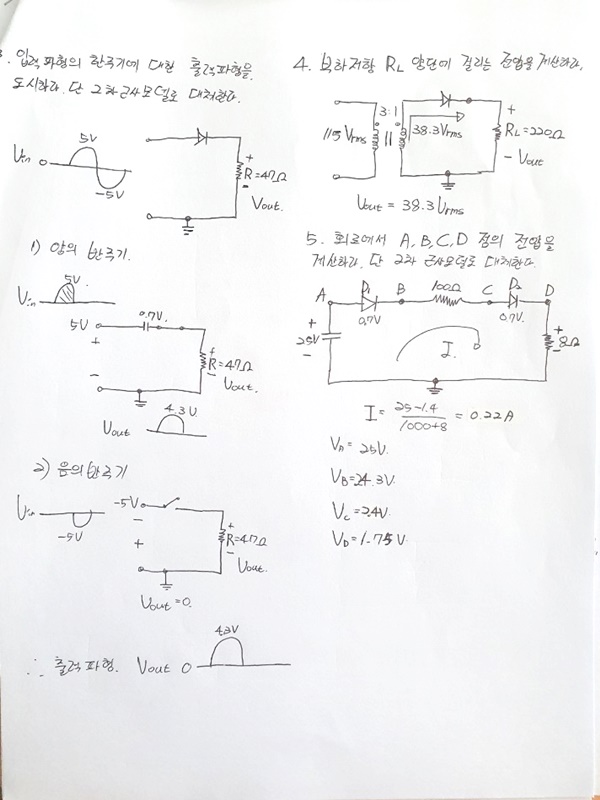 3. 입력파형의 한주기에 대한 출력파형을
도시하라. 단 2차근사모델로 대체한다.
Vin 0 5V -5V
R=47Ω
+
-
Vout.
1) 양의 반주기.
Vin 5V
0.7V
5V
+
-
+
R=47Ω
-
Vout.
Vout 4.3V
2) 음의 반주기
Vin -5V
-5V
-
+
+
R=47Ω
-
Vout.
Vout=0.
4.3V
∴ 출력파형. Vout 0
4. 부하저항 RL 양단에 걸리는 전압을 계산하라.
3:1
115Vrms
38.3Vrms
+
RL=220Ω
- Vout
Vout = 38.3Vrms
5. 회로에서 A, B, C, D 점의 전압을
계산하라, 단 2차 근사모델로 대체한다.
A D1 B 100Ω C D2 D
0.7V 0.7V.
+
25V
-
I.
+
8Ω
-
I = 25-1.4 / 100+8 = 0.22A
VA = 25V.
VB = 24.3V.
VC = 2.4V.
VD = 1.75V.